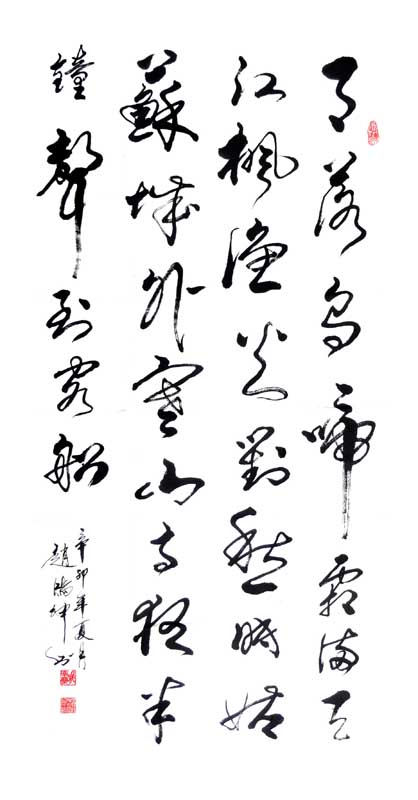 月落烏啼霜滿天
江楓漁火對愁眠姑
蘇城外寒山寺夜半
鐘聲到客船
辛卯年夏月
趙